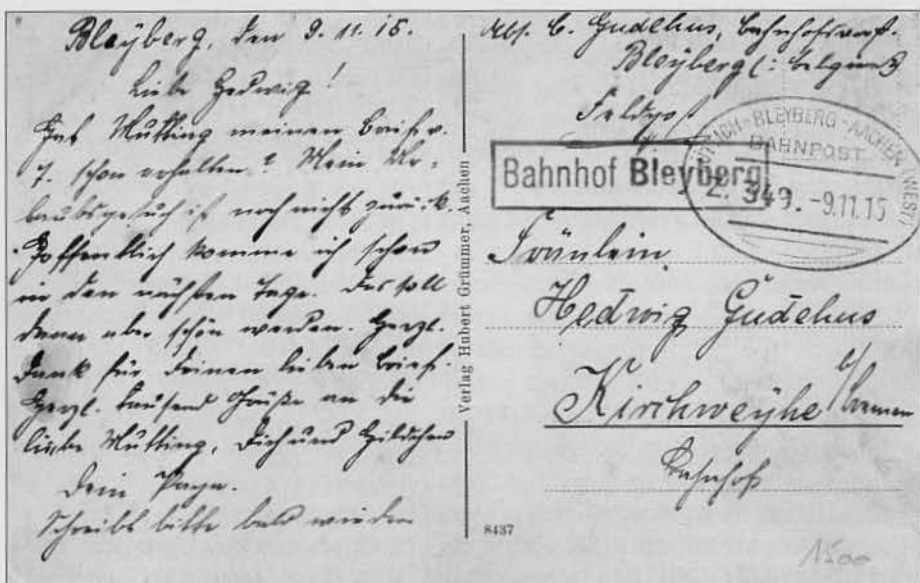 Bleyberg, den 9.11.15.
Liebe Hedwig!
Hat Mutting meinen Brief v.
7. schon erhalten? Mein Ur-
laubsgesuch ist noch nicht zurück
Hoffentlich komme ich schon
in den nächsten Tage. Das soll
dann aber schön werden. Herzl.
Dank für Deinen lieben Brief.
Herzl. tausend Grüße an die
liebe Mutting, Dich und Hildchen
Dein Papa.
Schreibt bitte bald wieder
Verlag Hubert Grümmer, Aachen
8437
Abs. C. Gudehus, Bahnhofsvorst.
Bleyberg (: Belgien :)
Feldpost
Bahnhof Bleyberg
-BLEYBERG-AACHEN (WEST)
BAHNPOST
Z. 349. -9.11.15
Fräulein
Hedwig Gudehus
Kirchweyhe b/Bremen
Bahnhof
1500